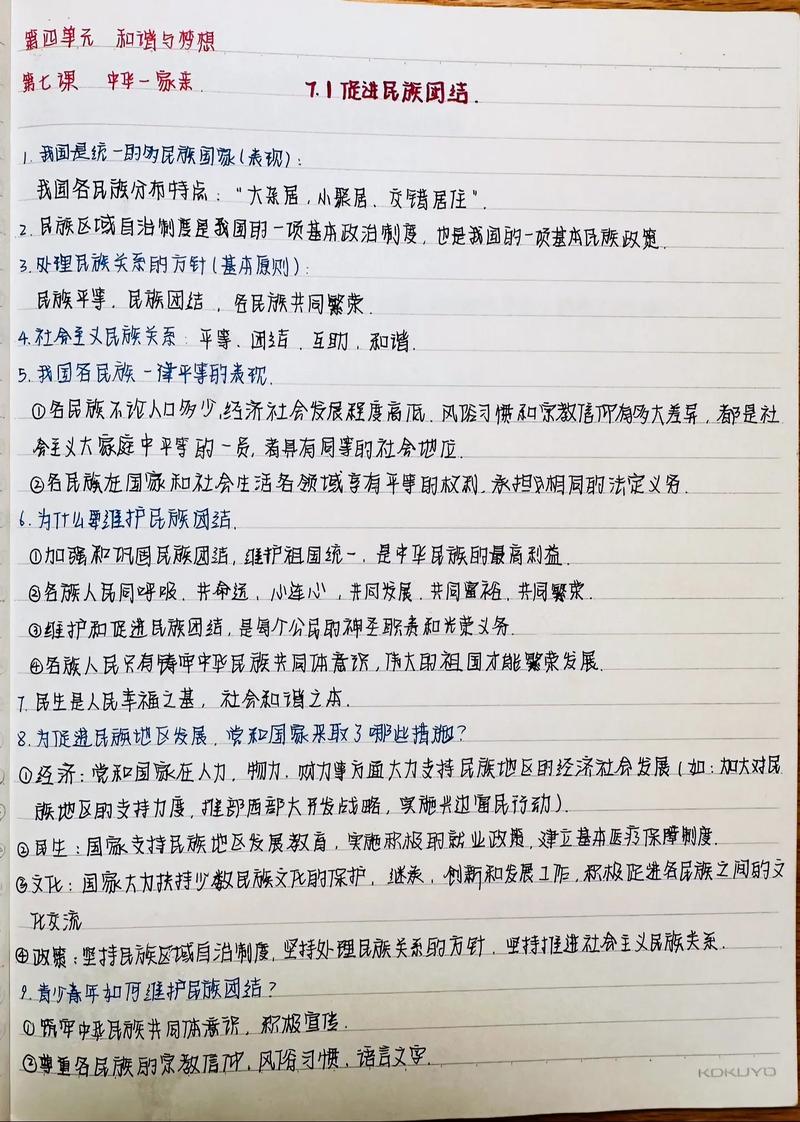 第四单元 和谐与梦想
第七课 中华一家亲
7.1 促进民族团结.
1. 我国是统一的多民族国家(表现):
我国各民族分布特点:"大杂居,小聚居、交错居住".
2. 民族区域自治制度是我国的一项基本政治制度,也是我国的一项基本民族政策.
3. 处理民族关系的方针(基本原则):
民族平等.民族团结,各民族共同繁荣.
4. 社会主义民族关系:平等、团结.互助,和谐.
5. 我国各民族一律平等的表现.
①各民族不论人口多少,经济社会发展程度高低.风俗习惯和宗教信仰有多大差异,都是社
会主义大家庭中平等的一员,都具有同等的社会地位.
②各民族在国家和社会生活各领域享有平等的权利.承担相同的法定义务.
6. 为什么要维护民族团结.
①加强和巩固民族团结,维护祖国统一,是中华民族的最高利益.
②各族人民同呼吸.共命运,心连心,共同发展.共同富裕.共同繁荣.
③维护和促进民族团结,是每个公民的神圣职责和光荣义务.
④各族人民只有铸牢中华民族共同体意识,伟大的祖国才能繁荣发展.
7. 民生是人民幸福之基,社会和谐之本.
8. 为促进民族地区发展,党和国家采取了哪些措施?
①经济:党和国家在人力,物力.财力等方面大力支持民族地区的经济社会发展(如:加大对民
族地区的支持力度,推部西部大开发战略,实施兴边富民行动).
②民生:国家支持民族地区发展教育,实施积极的就业政策,建立基本医疗保障制度.
③文化:国家大力扶持少数民族文化的保护,继承,创新和发展工作,积极促进各民族之间的文
化交流
④政策:坚持民族区域自治制度,坚持处理民族关系的方针,坚持推进社会主义民族关系.
9. 青少年如何维护民族团结?
①筑牢中华民族共同体意识,积极宣传.
②尊重各民族的宗教信仰,风俗习惯,语言文字.
KOKUYO